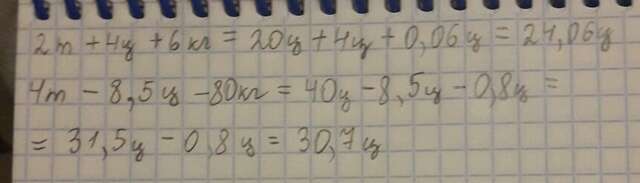 2т + 4ц + 6кг = 20ц + 4ц + 0,06ц = 24,06ц
4т - 8,5ц - 80кг = 40ц - 8,5ц - 0,8ц =
= 31,5ц - 0,8ц = 30,7ц